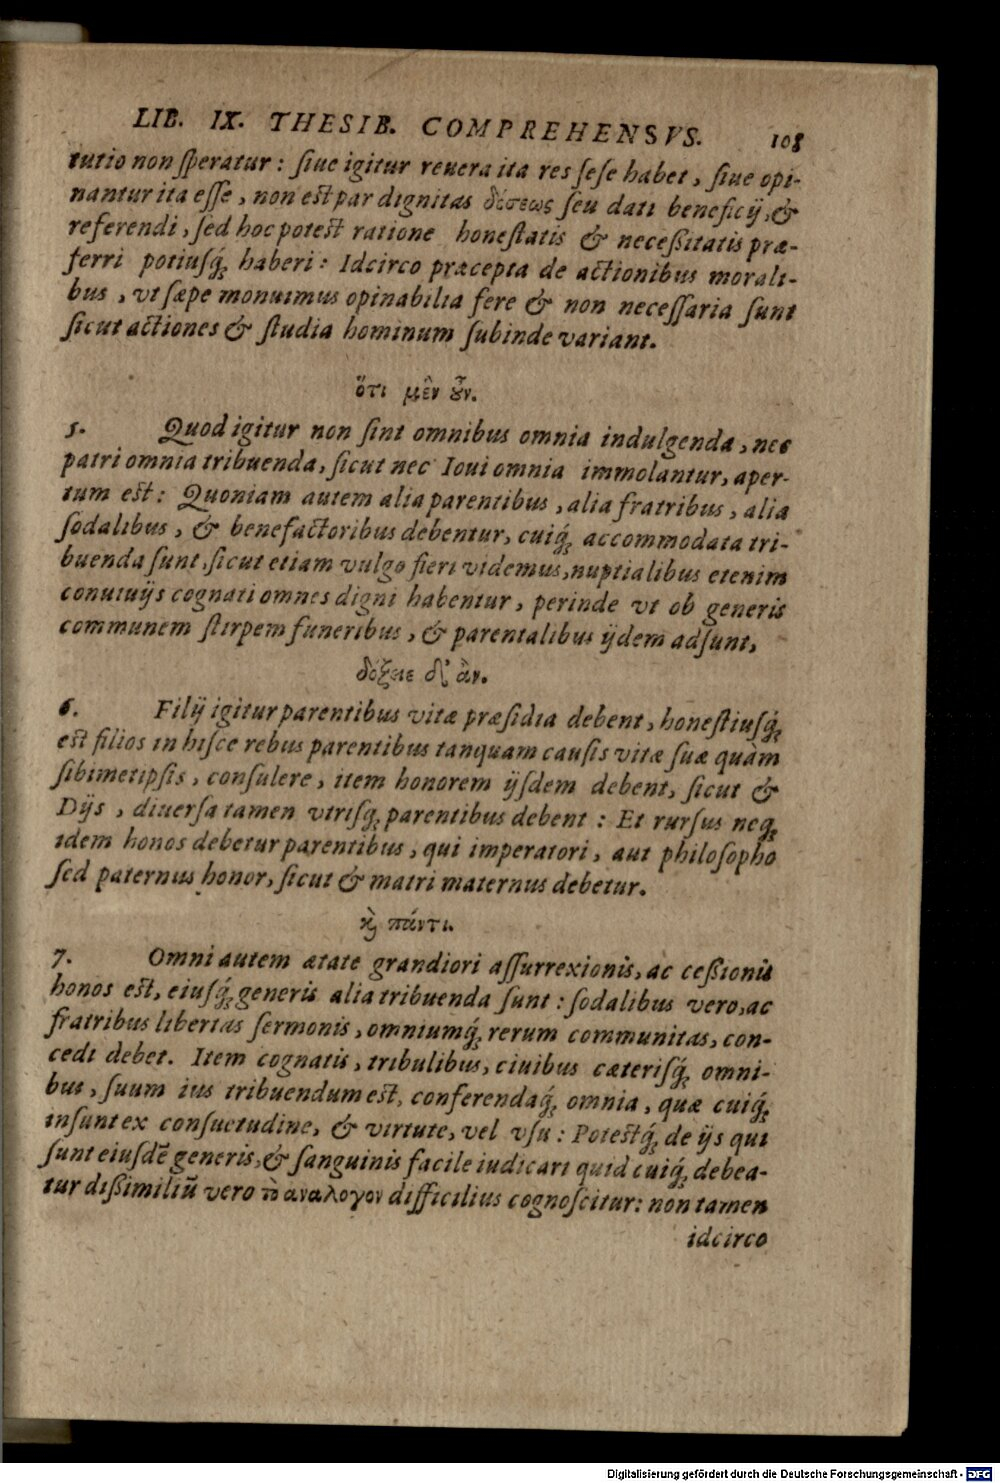 LIB. IX. THESIB. COMPREHENSVS. 108
tutio non speratur: siue igitur reuera ita res sese habet, siue opi-
nantur ita esse, non est par dignitas δόσεως seu dati beneficij, &
referendi, sed hoc potest ratione honestatis & necessitatis præ-
ferri potiusq́; haberi: Idcirco præcepta de actionibus morali-
bus, vt sæpe monuimus opinabilia fere & non necessaria sunt
sicut actiones & studia hominum subinde variant.
ὅτι μὲν ȣ̓͂ν.
5. Quod igitur non sint omnibus omnia indulgenda, nec
patri omnia tribuenda, sicut nec Ioui omnia immolantur, aper-
tum est: Quoniam autem alia parentibus, alia fratribus, alia
sodalibus, & benefactoribus debentur, cuiq́; accommodata tri-
buenda sunt, sicut etiam vulgo fieri videmus, nuptialibus etenim
conuiuijs cognati omnes digni habentur, perinde vt ob generis
communem stirpem funeribus, & parentalibus ijdem adsunt,
δόξειε δ' ἂν.
6. Filij igitur parentibus vitæ præsidia debent, honestiusq́;
est filios in hisce rebus parentibus tanquam causis vitæ suæ quàm
sibimetipsis, consulere, item honorem ijsdem debent, sicut &
Dijs, diuersa tamen vtrisq; parentibus debent: Et rursus neq;
idem honos debetur parentibus, qui imperatori, aut philosopho
sed paternus honor, sicut & matri maternus debetur.
ϗ̀ παντι.
7. Omni autem ætate grandiori assurrexionis, ac cessionis
honos est, eiusq́; generis alia tribuenda sunt: sodalibus vero, ac
fratribus libertas sermonis, omniumq́; rerum communitas, con-
cedi debet. Item cognatis, tribulibus, ciuibus cæterisq́; omni-
bus, suum ius tribuendum est, conferendaq́; omnia, quæ cuiq́;
insunt ex consuetudine, & virtute, vel vsu: Potestq́; de ijs qui
sunt eiusdē generis, & sanguinis facile iudicari quid cuiq́; debea-
tur dissimiliū vero τὸ αναλογον difficilius cognoscitur: non tamen
idcirco
Digitalisierung gefördert durch die Deutsche Forschungsgemeinschaft - DFG